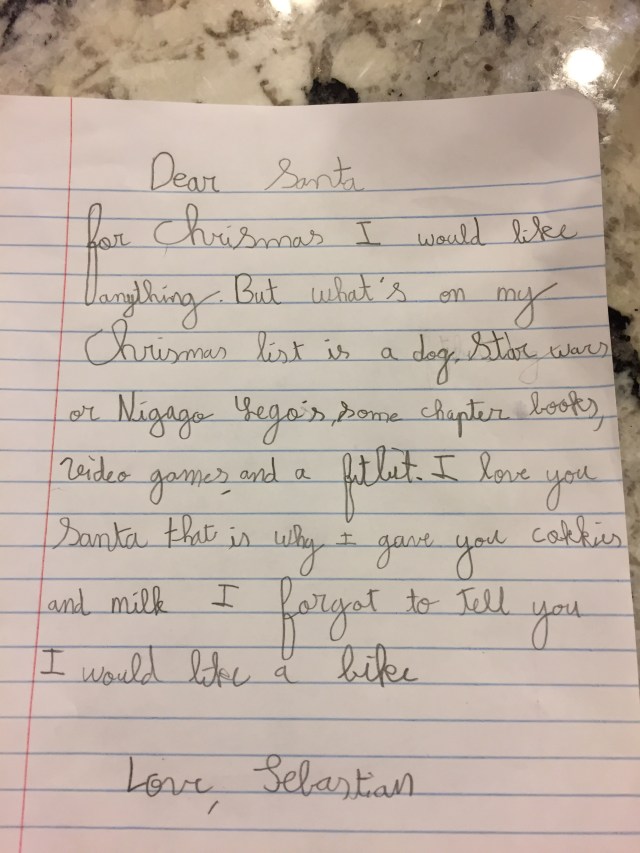 Dear Santa
for Chrismas I would like
anything. But what's on my
Chrismas list is a dog, Star wars
or Nigago Lego's, some chapter books,
video games, and a fitbit. I love you
Santa that is why I gave you cokkies
and milk I forgot to tell you
I would like a bike
Love, Sebastian